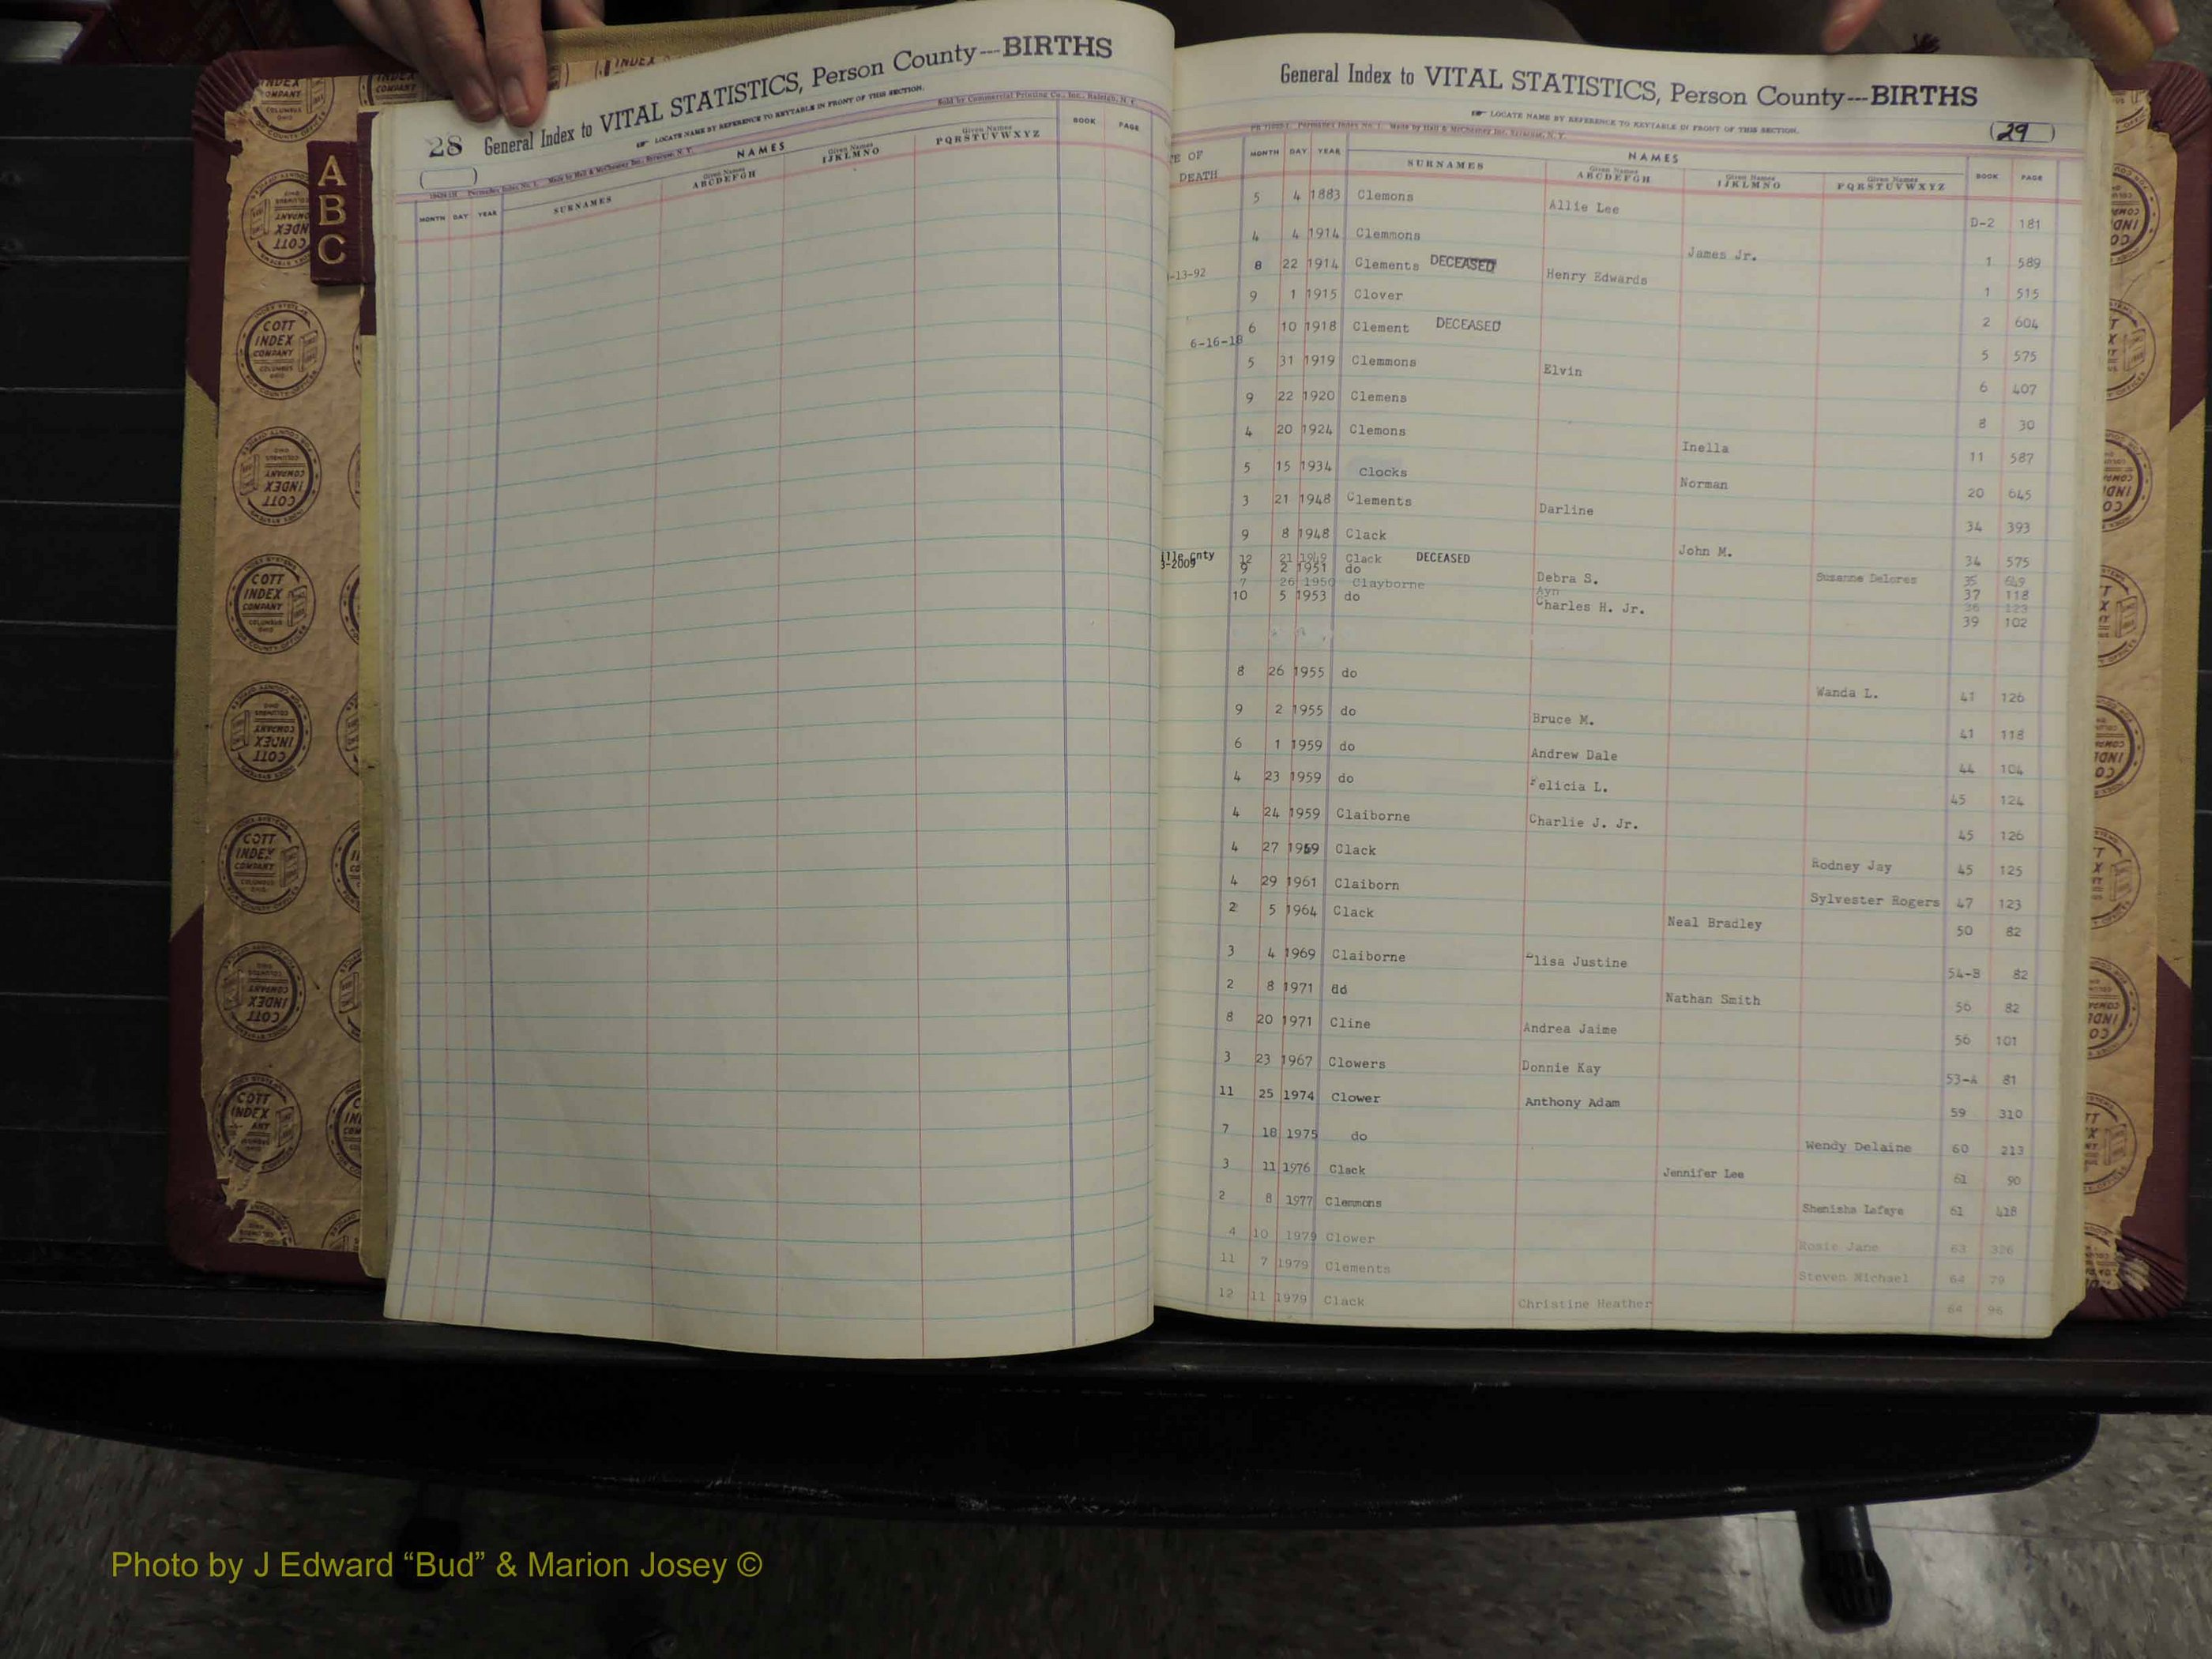 28 General Index to VITAL STATISTICS, Person County---BIRTHS
LOCATE NAME BY REFERENCE TO KEYTABLE IN FRONT OF THIS SECTION.
Sold by Commercial Printing Co., Inc., Raleigh, N. C.
MONTH DAY YEAR SURNAMES NAMES Given Names ABCDEFGH Given Names IJKLMNO Given Names PQRSTUVWXYZ BOOK PAGE
A
B
C
COTT INDEX COMPANY COLUMBUS OHIO
General Index to VITAL STATISTICS, Person County---BIRTHS
LOCATE NAME BY REFERENCE TO KEYTABLE IN FRONT OF THIS SECTION.
(29)
DEATH MONTH DAY YEAR SURNAMES NAMES Given Names ABCDEFGH Given Names IJKLMNO Given Names PQRSTUVWXYZ BOOK PAGE
5 4 1883 Clemons Allie Lee D-2 181
4 4 1914 Clemmons James Jr. 1 589
-13-92 8 22 1914 Clements DECEASED Henry Edwards 1 515
9 1 1915 Clover 2 604
6-16-18 6 10 1918 Clement DECEASED 5 575
5 31 1919 Clemmons Elvin 6 407
9 22 1920 Clemens 8 30
4 20 1924 Clemons Inella 11 587
5 15 1934 Clocks Norman 20 645
3 21 1948 Clements Darline 34 393
9 8 1948 Clack John M. 34 575
ille Cnty
3-2009 12 21 1949 Clack DECEASED Suzanne Delores 35 649
9 2 1951 do Debra S. 37 118
7 26 1950 Clayborne Ayn 36 123
10 5 1953 do Charles H. Jr. 39 102
8 26 1955 do Wanda L. 41 126
9 2 1955 do Bruce M. 41 118
6 1 1959 do Andrew Dale 44 104
4 23 1959 do Felicia L. 45 124
4 24 1959 Claiborne Charlie J. Jr. 45 126
4 27 1959 Clack Rodney Jay 45 125
4 29 1961 Claiborn Sylvester Rogers 47 123
2 5 1964 Clack Neal Bradley 50 82
3 4 1969 Claiborne Elisa Justine 54-B 82
2 8 1971 dd Nathan Smith 56 82
8 20 1971 Cline Andrea Jaime 56 101
3 23 1967 Clowers Donnie Kay 53-A 81
11 25 1974 Clower Anthony Adam 59 310
7 18 1975 do Wendy Delaine 60 213
3 11 1976 Clack Jennifer Lee 61 90
2 8 1977 Clemmons Shenisha Lafaye 61 418
4 10 1979 Clower Rosie Jane 63 326
11 7 1979 Clements Steven Michael 64 79
12 11 1979 Clack Christine Heather 64 96
Photo by J Edward “Bud” & Marion Josey ©